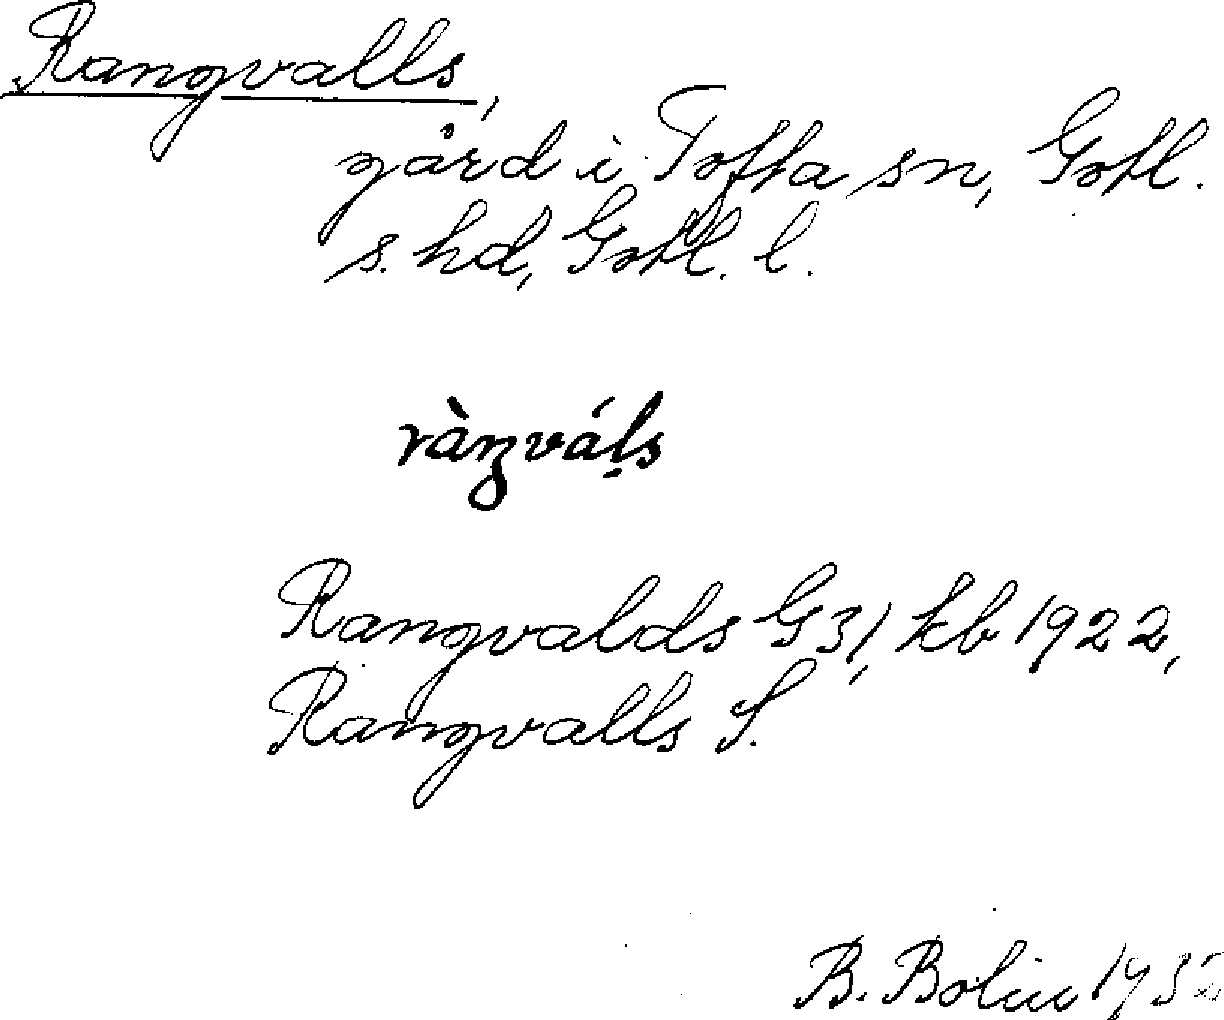 Rangvalls,
gård i Tofta sn, Gotl.
s. hd, Gotl. l.
ràŋváḷs
Rangvalds G 31, kb 1922,
Rangvalls S.
B. Bolin 1932